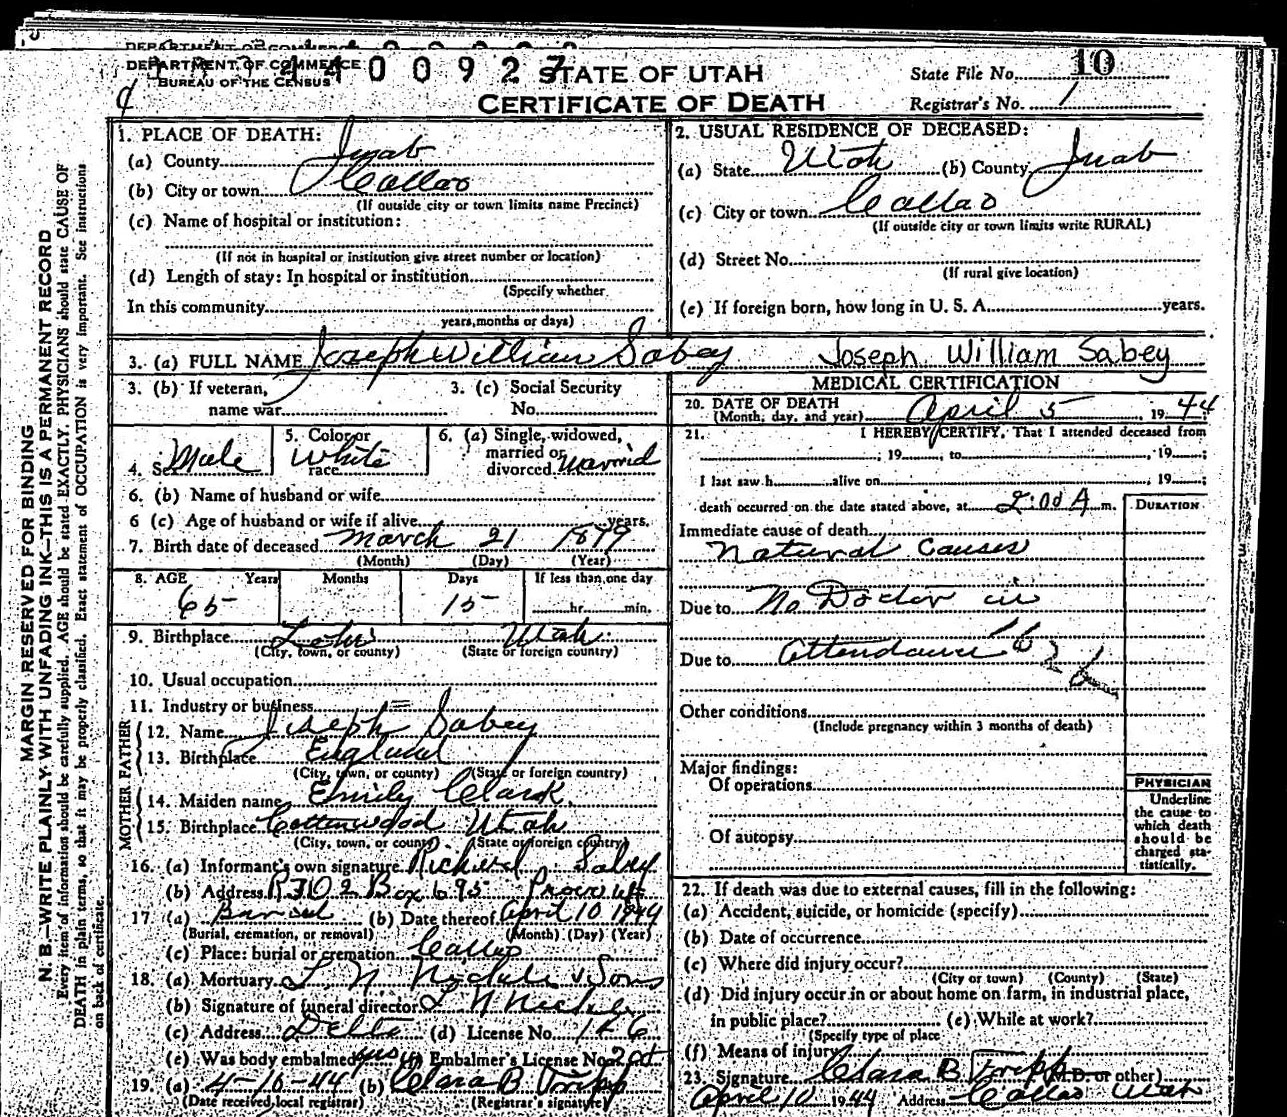 DEPARTMENT OF COMMERCE
BUREAU OF THE CENSUS
4400927
STATE OF UTAH
CERTIFICATE OF DEATH
State File No. 10
Registrar's No. 1
MARGIN RESERVED FOR BINDING
N. B.—WRITE PLAINLY WITH UNFADING INK—THIS IS A PERMANENT RECORD
Every item of information should be carefully supplied. AGE should be stated EXACTLY. PHYSICIANS should state CAUSE OF
DEATH in plain terms, so that it may be properly classified. Exact statement of OCCUPATION is very important. See instructions
on back of certificate.
1. PLACE OF DEATH:
(a) County Juab
(b) City or town Callao
(If outside city or town limits name Precinct)
(c) Name of hospital or institution:
(If not in hospital or institution give street number or location)
(d) Length of stay: In hospital or institution
(Specify whether
In this community
years, months or days)
2. USUAL RESIDENCE OF DECEASED:
(a) State Utah (b) County Juab
(c) City or town Callao
(If outside city or town limits write RURAL)
(d) Street No.
(If rural give location)
(e) If foreign born, how long in U. S. A. years.
3. (a) FULL NAME Joseph William Sabey Joseph William Sabey
3. (b) If veteran,
name war
3. (c) Social Security
No.
4. Sex Male
5. Color or
race White
6. (a) Single, widowed,
married or
divorced Married
6. (b) Name of husband or wife
6 (c) Age of husband or wife if alive years.
7. Birth date of deceased March 21 1879
(Month) (Day) (Year)
8. AGE Years Months Days If less than one day
65 15 hr. min.
9. Birthplace Lehi Utah
(City, town, or county) (State or foreign country)
10. Usual occupation
11. Industry or business
FATHER
12. Name Joseph Sabey
13. Birthplace England
(City, town, or county) (State or foreign country)
MOTHER
14. Maiden name Emily Clark
15. Birthplace Cottonwood Utah
(City, town, or county) (State or foreign country)
16. (a) Informant's own signature Richard Sabey
(b) Address RFD 2 Box 695 Provo Ut
17. (a) Burial (b) Date thereof April 10 1944
(Burial, cremation, or removal) (Month) (Day) (Year)
(c) Place: burial or cremation Callao
18. (a) Mortuary & Sons
(b) Signature of funeral director
(c) Address Delta (d) License No. 126
(e) Was body embalmed yes (f) Embalmer's License No.
19. (a) 4-10-44 (b) Clara B Tripp
(Date received local registrar) (Registrar's signature)
MEDICAL CERTIFICATION
20. DATE OF DEATH
(Month, day, and year) April 5, 1944
21. I HEREBY CERTIFY, That I attended deceased from
, 19 ; to , 19 ;
I last saw h alive on , 19 ;
death occurred on the date stated above, at 2:00 A m.
DURATION
Immediate cause of death
Natural Causes
Due to No Doctor in
Due to attendance
Other conditions
(Include pregnancy within 3 months of death)
Major findings:
Of operations
Of autopsy
PHYSICIAN
Underline
the cause to
which death
should be
charged sta-
tistically.
22. If death was due to external causes, fill in the following:
(a) Accident, suicide, or homicide (specify)
(b) Date of occurrence
(c) Where did injury occur?
(City or town) (County) (State)
(d) Did injury occur in or about home on farm, in industrial place,
in public place? (e) While at work?
(Specify type of place
(f) Means of injury
23. Signature Clara B Tripp (M.D. or other)
April 10 1944 Address Callao Utah